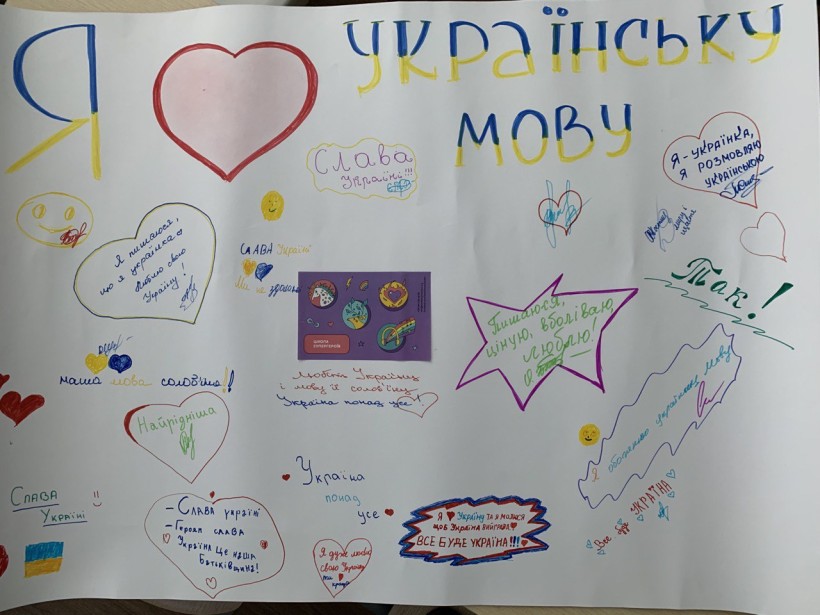 Я УКРАЇНСЬКУ
МОВУ
Слава
Україні!!!
Я - УКРАЇНКА,
Я РОЗМОВЛЯЮ
УКРАЇНСЬКОЮ
Я пишаюся,
що я українка
Люблю свою
Україну!
СЛАВА Україні
Ми не
Так!
Пишаюся,
ціную, вболіваю,
люблю!
наша мова солов'їна!!
Люблю Україну
і мову її солов'їну
Україна понад усе!
Найрідніша
Я обожнюю українську мову
Слава
Україні
- Слава україні
- Героям слава
Україна це наша
Батьківщина!
Україна
понад
усе
Я дуже люблю
свою Україну
Я Україну та я молюся
щоб Україна виграла
ВСЕ БУДЕ УКРАЇНА!!!
Все буде УКРАЇНА